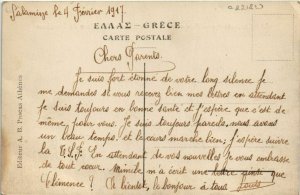 Salamine le 4 Février 1917.
ΕΛΛΑΣ – GRÈCE
CARTE POSTALE
Chers Parents
Je suis fort étonné de votre long silence je
me demandes si vous recevez bien mes lettres en attendant
je suis toujours en bonne santé et j'espère que c'est de
même, pour vous. Je suis toujours mais, avons
un beau temps et le cours marche bien; j'espère suivre
la En attendant de vos nouvelles Je vous embrasse
de tout cœur. m'a écrit une
Clémence ? A bientôt, le bonjour à tout
Editeur A. B. Pascas Athènes